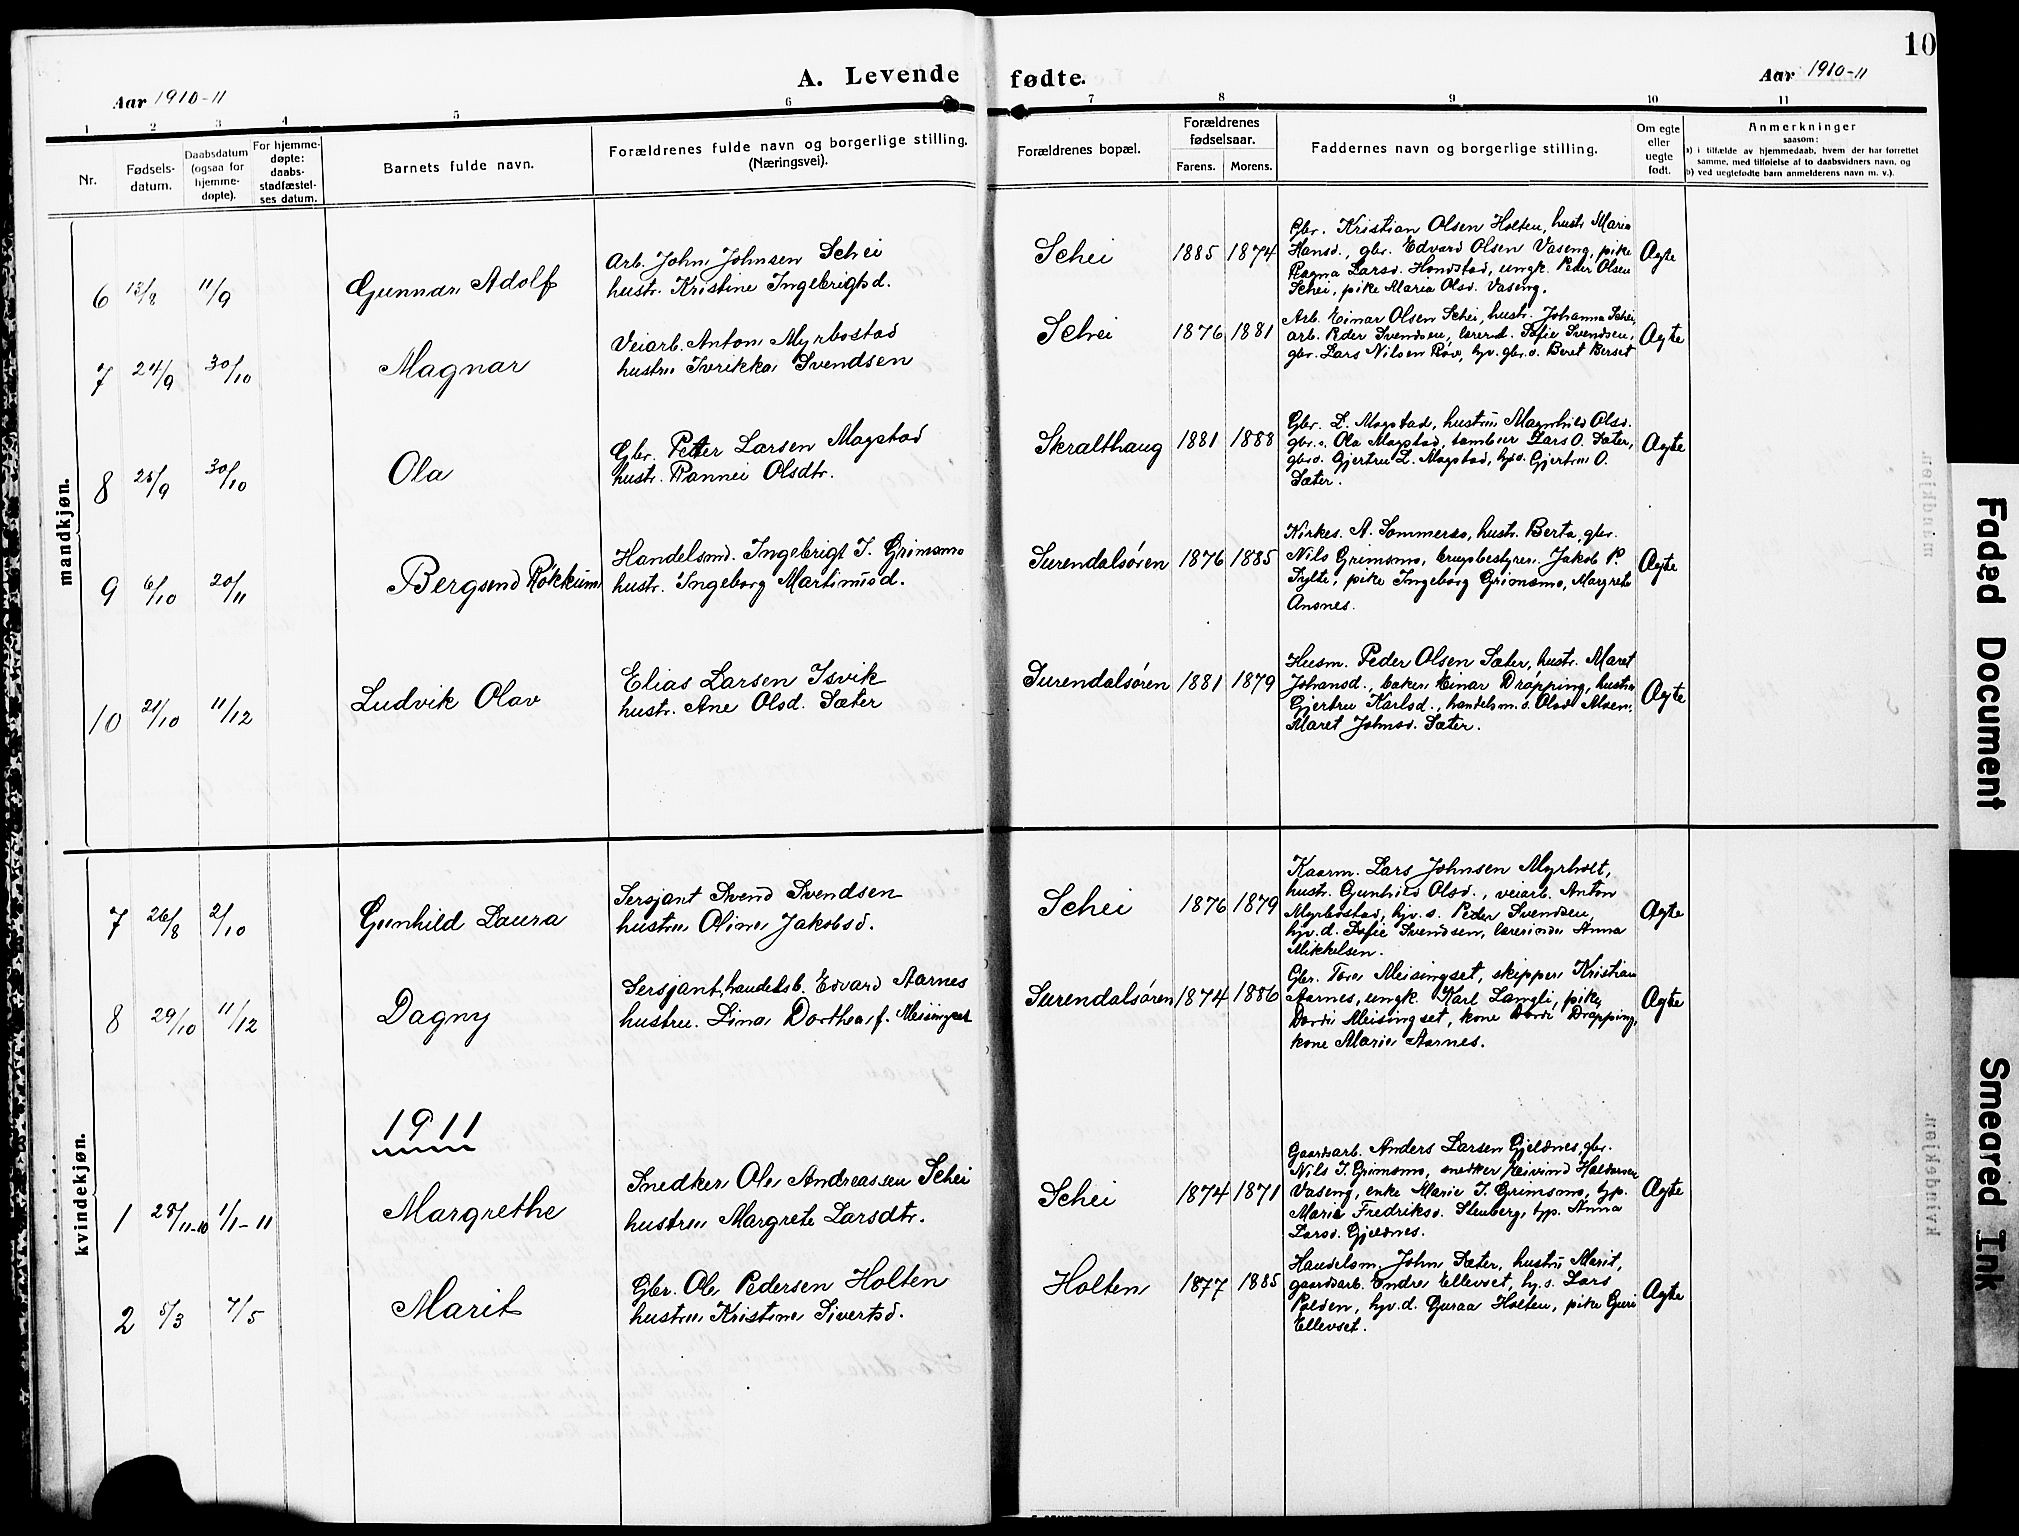 10
A. Levende fødte.
Aar 1910-11
Aar 1910-11
1 2 3 4 5 6 7 8 9 10 11
Nr.
Fødsels-
datum.
Daabsdatum
(ogsaa for
hjemme-
døpte).
For hjemme-
døpte:
daabs-
stadfæstel-
ses datum.
Barnets fulde navn.
Forældrenes fulde navn og borgerlige stilling.
(Næringsvei).
Forældrenes bopæl.
Forældrenes
fødselsaar.
Farens. Morens.
Faddernes navn og borgerlige stilling.
Om egte
eller
uegte
født.
Anmerkninger
saasom:
a) i tilfælde av hjemmedaab, hvem der har forrettet
samme, med tilføielse af to daabsvidners navn, og
b) ved uegtefødte barn anmelderens navn m. v.).
mandkjøn.
6 13/8 11/9 Gunnar Adolf
Arb. John Johnsen Schei
hustr. Kristine Ingebrigtsd.
Schei 1885 1874
Gbr. Kristian Olsen Holten, hustr. Maria
Hansd., gbr. Edvard Olsen Vaseng, pike
Ragna Larsd. Hondstad, ungk. Peder Olsen
Schei, pike Maria Olsd. Vaseng.
Ægte
7 24/9 30/10 Magnar
Veiarb. Anton Myrbostad
hustru Iverikka Svendsen
Schei 1876 1881
Arb. Einar Olsen Schei, hustr. Johanna Schei,
arb. Peder Svendsen, lærerd. Sofie Svendsen,
gbr. Lars Nilsen Røv, hjv. gbr. d. Beret Berset
Ægte
8 25/9 30/10 Ola
Gbr. Petter Larsen Mogstad
hustr. Rannei Olsdtr.
Skralthaug 1881 1888
Gbr. L. Mogstad, hustru Magnhild Olsd.
gbr. s. Ola Mogstad, tambur Lars O. Sæter,
gbr. d. Gjertru L. Mogstad, hjv. Gjertru O.
Sæter.
Ægte
9 6/10 20/11 Bergsvend Røkkum
Handelsmd. Ingebrigt J. Grimsmo
hustr. Ingeborg Martinusd.
Surendalsøren 1876 1885
Kirkes. A. Sommersø, hustr. Berta, gbr.
Nils Grimsmo, brugsbestyrer Jakob P.
Sylte, pike Ingeborg Grimsmo, Margrete
Ansnes.
Ægte
10 21/10 11/12 Ludvik Olav
Elias Larsen Isvik
hustr. Ane Olsd. Sæter
Surendalsøren 1881 1879
Husm. Peder Olsen Sæter, hustr. Maret
Johansd., baker Einar Drøpping, hustru
Gjertru Karlsd., handelsm. s.
Maret Johnsd. Sæter.
Ægte
kvindekjøn.
7 26/8 2/10 Gunhild Laura
Sersjant Svend Svendsen
hustru Oline Jakobsd.
Schei 1876 1879
Kaarm. Lars Johnsen Myrholt,
hustr. Gunhild Olsd., veiarb. Anton
Myrbostad, hjv. s. Peder Svendsen,
hjv. d. Sofie Svendsen, lærerinde Anna
Mikkelsen.
Ægte
8 29/10 11/12 Dagny
Sersjant, handelsb. Edvard Aarnes
hustru. Lina Dorthea f. Meisingset
Surendalsøren 1874 1886
Gbr. Tore Meisingset, skipper Kristian
Aarnes, ungk. Karl Langli, pike
Dordi Meisingset, kone Dordi Drøpping,
kone Marie Aarnes.
Ægte
1911
1 28/11-10 1/1-11 Margrethe
Snedker Ole Andreassen Schei
hustru Margrete Larsdtr.
Schei 1874 1871
Gaardsarb. Anders Larsen Gjeldnes, gbr.
Nils J. Grimsmo, snedker Eivind Haldorsen
Vaseng, enke Marie J. Grimsmo, typ.
Marie Fredriksd. Stenberg, typ. Anna
Larsd. Gjeldnes.
Ægte
2 5/3 7/5 Marit
Gbr. Ole Pedersen Holten
hustru Kristine Sivertsd.
Holten 1877 1885
Handelsm. John Sæter, hustru Marit,
gaardsarb. Endre Ellevset, hj. s. Lars
Polden, hjv. d. Guraa Holten, pike Guri
Ellevset.
Ægte
Faded Document
Smeared Ink